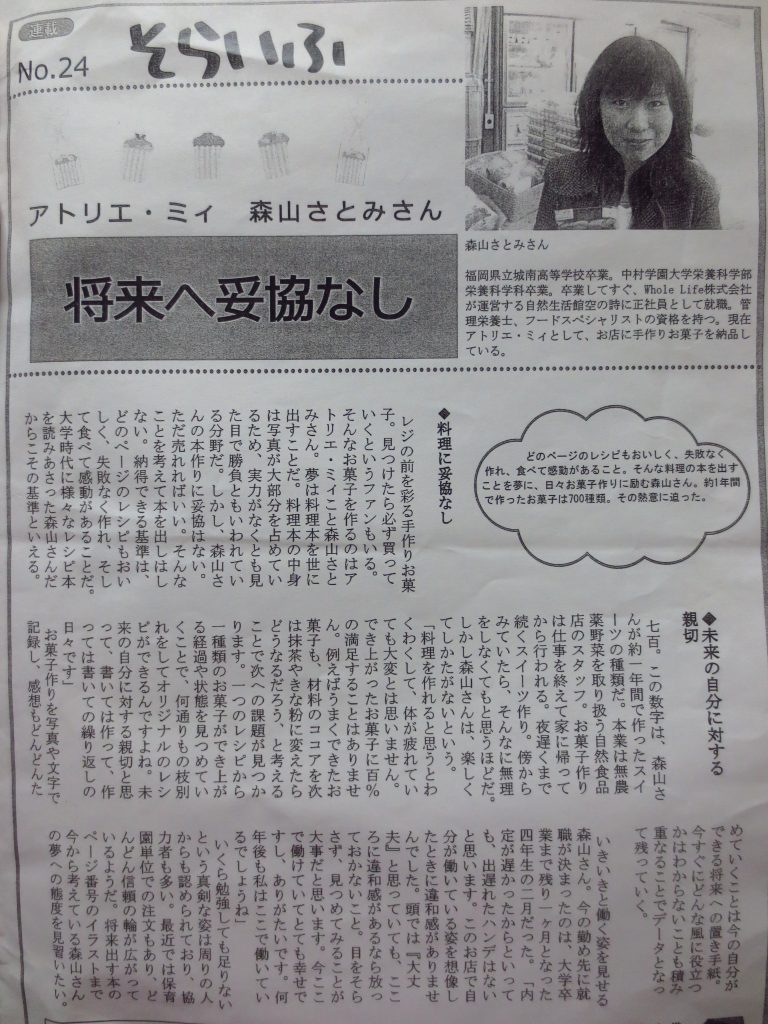 連載
No.24
そらいふ
アトリエ・ミィ 森山さとみさん
将来へ妥協なし
森山さとみさん
福岡県立城南高等学校卒業。中村学園大学栄養科学部
栄養科学科卒業。卒業してすぐ、Whole Life株式会社
が運営する自然生活館空の詩に正社員として就職。管
理栄養士、フードスペシャリストの資格を持つ。現在
アトリエ・ミィとして、お店に手作りお菓子を納品し
ている。
どのページのレシピもおいしく、失敗なく
作れ、食べて感動があること。そんな料理の本を出す
ことを夢に、日々お菓子作りに励む森山さん。約1年間
で作ったお菓子は700種類。その熱意に迫った。
◆料理に妥協なし
レジの前を彩る手作りお菓
子。見つけたら必ず買って
いくというファンもいる。
そんなお菓子を作るのはア
トリエ・ミィこと森山さと
みさん。夢は料理本を世に
出すことだ。料理本の中身
は写真が大部分を占めてい
るため、実力がなくとも見
た目で勝負ともいわれてい
る分野だ。しかし、森山さ
んの本作りに妥協はない。
ただ売れればいい。そんな
ことを考えて本を出しはし
ない。納得できる基準は、
どのページのレシピもおい
しく、失敗なく作れ、そし
て食べて感動があることだ。
大学時代に様々なレシピ本
を読みあさった森山さんだ
からこその基準といえる。
◆未来の自分に対する
親切
七百。この数字は、森山さ
んが約一年間で作ったスイ
ーツの種類だ。本業は無農
薬野菜を取り扱う自然食品
店のスタッフ。お菓子作り
は仕事を終えて家に帰って
から行われる。夜遅くまで
続くスイーツ作り。傍から
みていたら、そんなに無理
をしなくてもと思うほどだ。
しかし森山さんは、楽しく
てしかたがないという。
「料理を作れると思うとわ
くわくして、体が疲れてい
ても大変とは思いません。
でき上がったお菓子に百％
の満足することはありませ
ん。例えばうまくできたお
菓子も、材料のココアを次
は抹茶やきな粉に変えたら
どうなるだろう、と考える
ことで次への課題が見つか
ります。一つのレシピから
一種類のお菓子ができ上が
る経過や状態を見つめてい
くことで、何通りもの枝別
れをしてオリジナルのレシ
ピができるんですよね。未
来の自分に対する親切と思
って、書いては作って、作
っては書いての繰り返しの
日々です」
お菓子作りを写真や文字で
記録し、感想もどんどんた
めていくことは今の自分が
できる将来への置き手紙。
今すぐにどんな風に役立つ
かはわからないことも積み
重なることでデータとなっ
て残っていく。
いきいきと働く姿を見せる
森山さん。今の勤め先に就
職が決まったのは、大学卒
業まで残り一ヶ月となった
四年生の二月だった。「内
定が遅かったからといって
も、出遅れたハンデはない
と思います。このお店で自
分が働いている姿を想像し
たときに違和感がありませ
んでした。頭では『大丈
夫』と思っていても、ここ
ろに違和感があるなら放っ
ておかないこと。目をそら
さず、見つめてみることが
大事だと思います。今ここ
で働けていてとても幸せで
すし、ありがたいです。何
年後も私はここで働いてい
るでしょうね」
いくら勉強しても足りない
という真剣な姿は周りの人
からも認められており、協
力者も多い。最近では保育
園単位での注文もあり、ど
んどん信頼の輪が広がって
いるようだ。将来出す本の
ページ番号のイラストまで
今から考えている森山さん
の夢への態度を見習いたい。